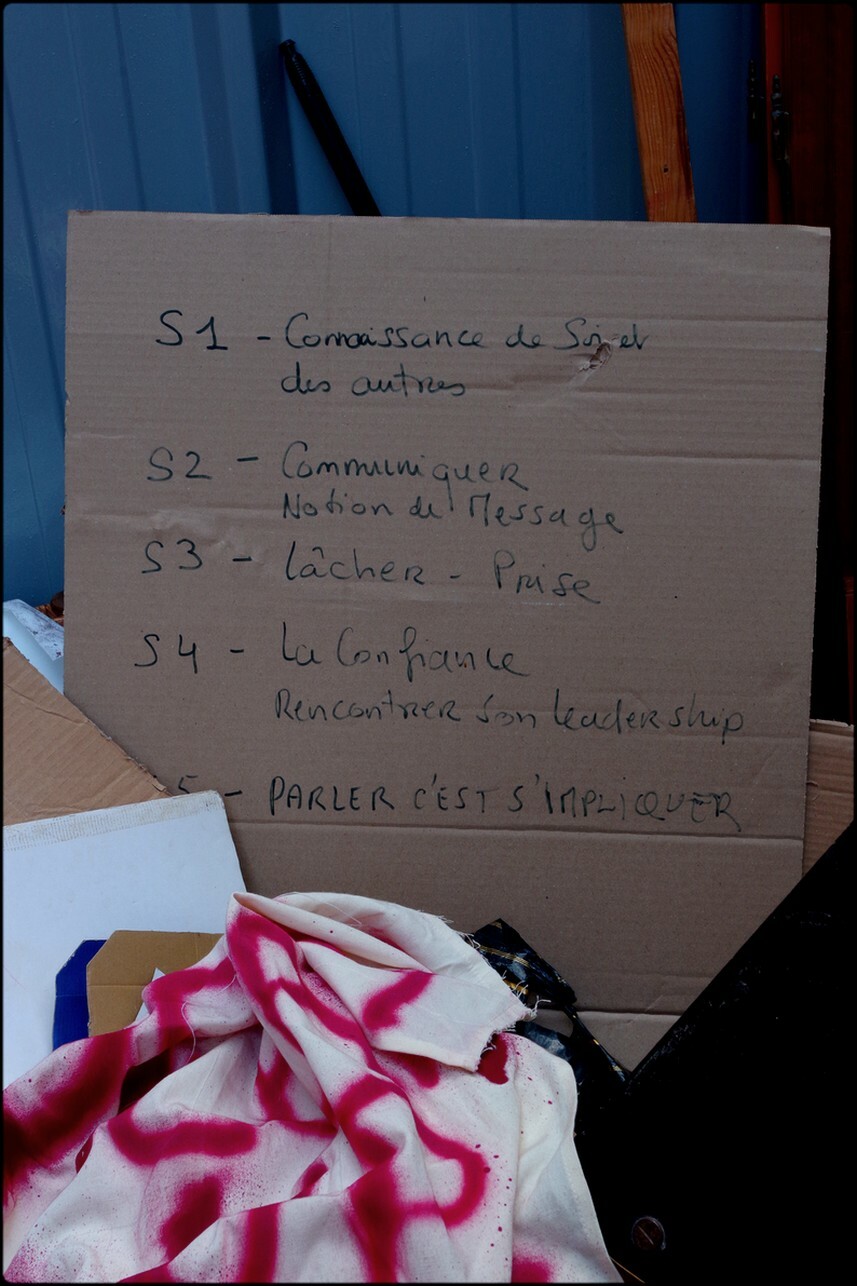 S1 - Connaissance de Soi et
des autres
S2 - Communiquer
Notion de Message
S3 - Lâcher - Prise
S4 - La Confiance
Rencontrer son leadership
5 - PARLER C'EST S'IMPLIQUER